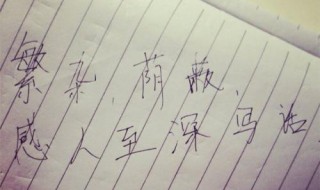 繁杂,荫蔽,
感人至深,写活